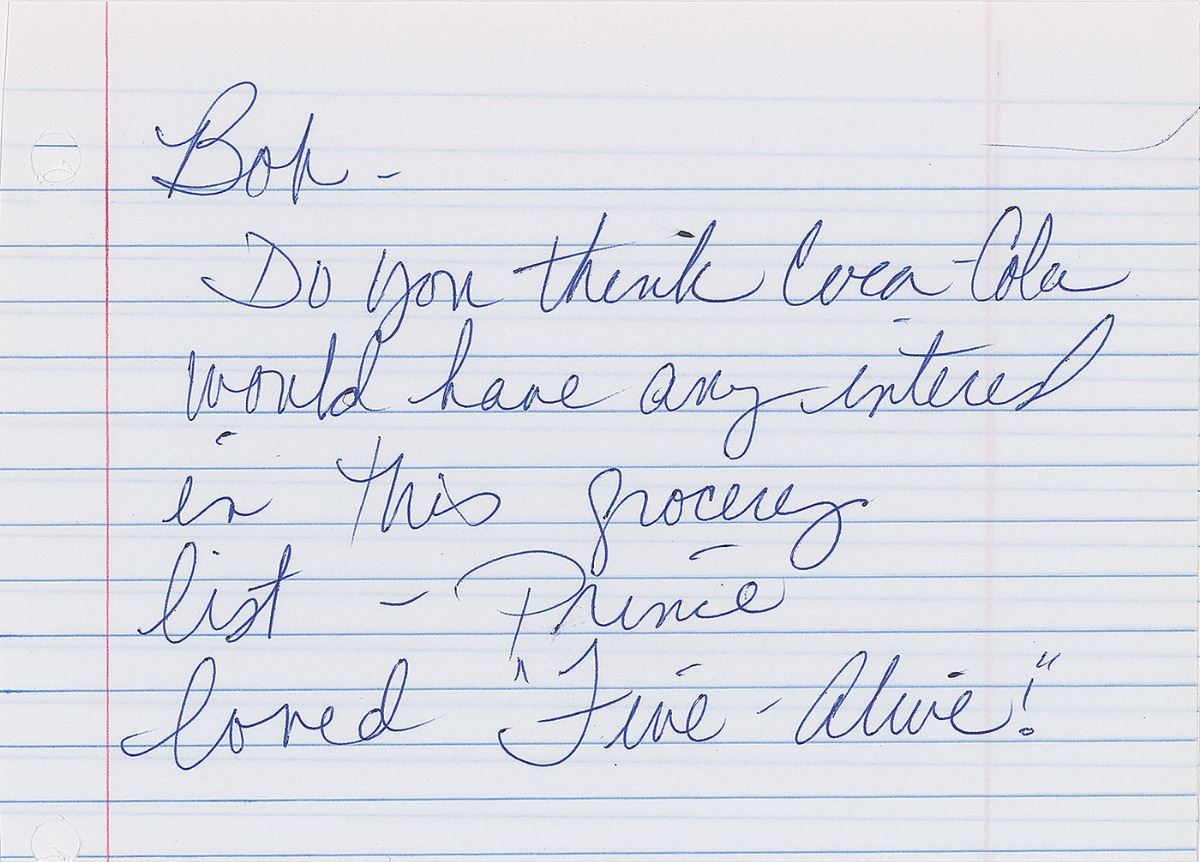 Bob -
Do you think Coca-Cola
would have any interest
in this grocery
list - Prince
loved "Five-Alive!"